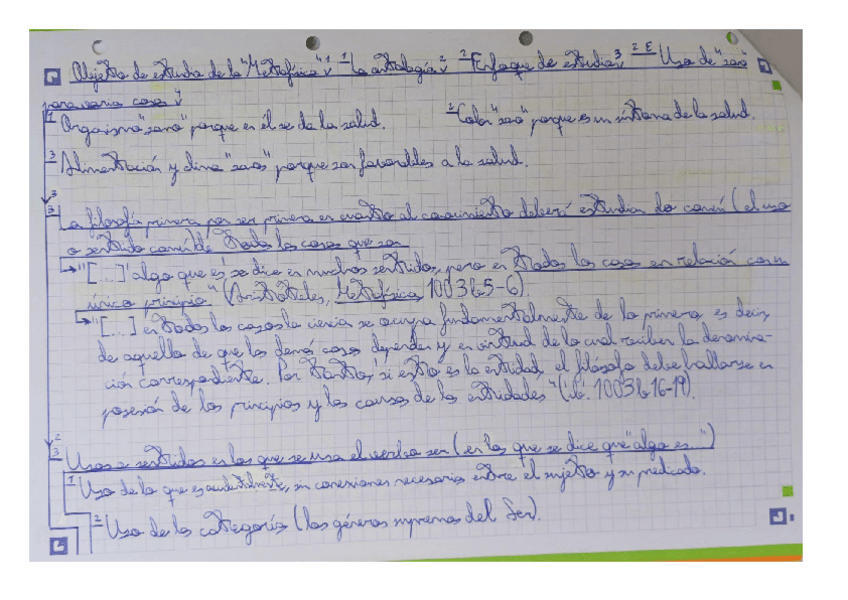 Objeto de estudio de la "Metafísica": ¹ La ontología: ² Enfoque de estudio: ³ ² E Uso de "sano"
para varias cosas:
1 Organismo "sano" porque en él se da la salud. 2 Color "sano" porque es un síntoma de la salud.
3 Alimentación y clima "sanos" porque son favorables a la salud.
3
3 La filosofía primera por ser primera en cuanto al conocimiento deberá estudiar lo común (el uso
o sentido común) de todas las cosas que son
→ "[...] 'algo que es' se dice en muchos sentidos, pero en todos los casos en relación con un
único principio" (Aristóteles, Metafísica 1003b5-6).
→ "[...] en todos los casos la ciencia se ocupa fundamentalmente de lo primero, es decir,
de aquello de que las demás cosas dependen y en virtud de lo cual reciben la denomina-
ción correspondiente. Por tanto, si esto es la entidad, el filósofo debe hallarse en
posesión de los principios y las causas de las entidades" (ib. 1003b16-19).
2
3 Usos o sentidos en los que se usa el verbo ser (en los que se dice que "algo es...")
1 Uso de lo que es accidentalmente, sin conexiones necesarias entre el sujeto y su predicado.
2 Uso de las categorías (los géneros supremos del Ser).